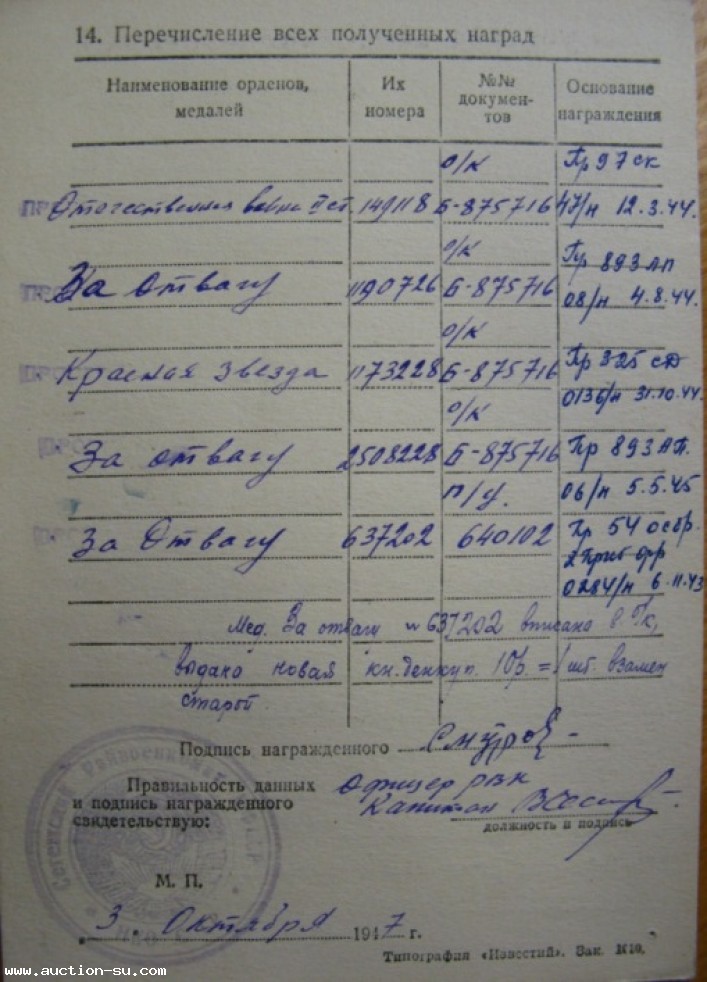 14. Перечисление всех полученных наград
Наименование орденов, медалей
Их номера
№№ документов
Основание награждения
о/к Пр 97 ск
Отечественная война II ст. 149118 Б-875716 47/н 12.3.44.
о/к Пр 893 ап
За отвагу 1190726 Б-875716 08/н 4.8.44.
о/к Пр 325 сд
Красная звезда 1173228 Б-875716 0136/н 31.10.44.
о/к
За отвагу 2508228 Б-875716 Пр 893 АП.
п/у. 06/н 5.5.45
За Отвагу 637202 640102 Пр 54 осбр.
2 Приб фр
0284/н 6.11.43
Мед. За отвагу № 637202 вписано в о/к,
выдано новая кн. денкуп. 10р. = 1 шт. взамен
старой.
Подпись награжденного
Правильность данных
и подпись награжденного
свидетельствую:
Офицер рвк
Капитан
должность и подпись
М. П.
3. Октября 1947 г.
Типография «Известий». Зак. М10.
www.auction-su.com